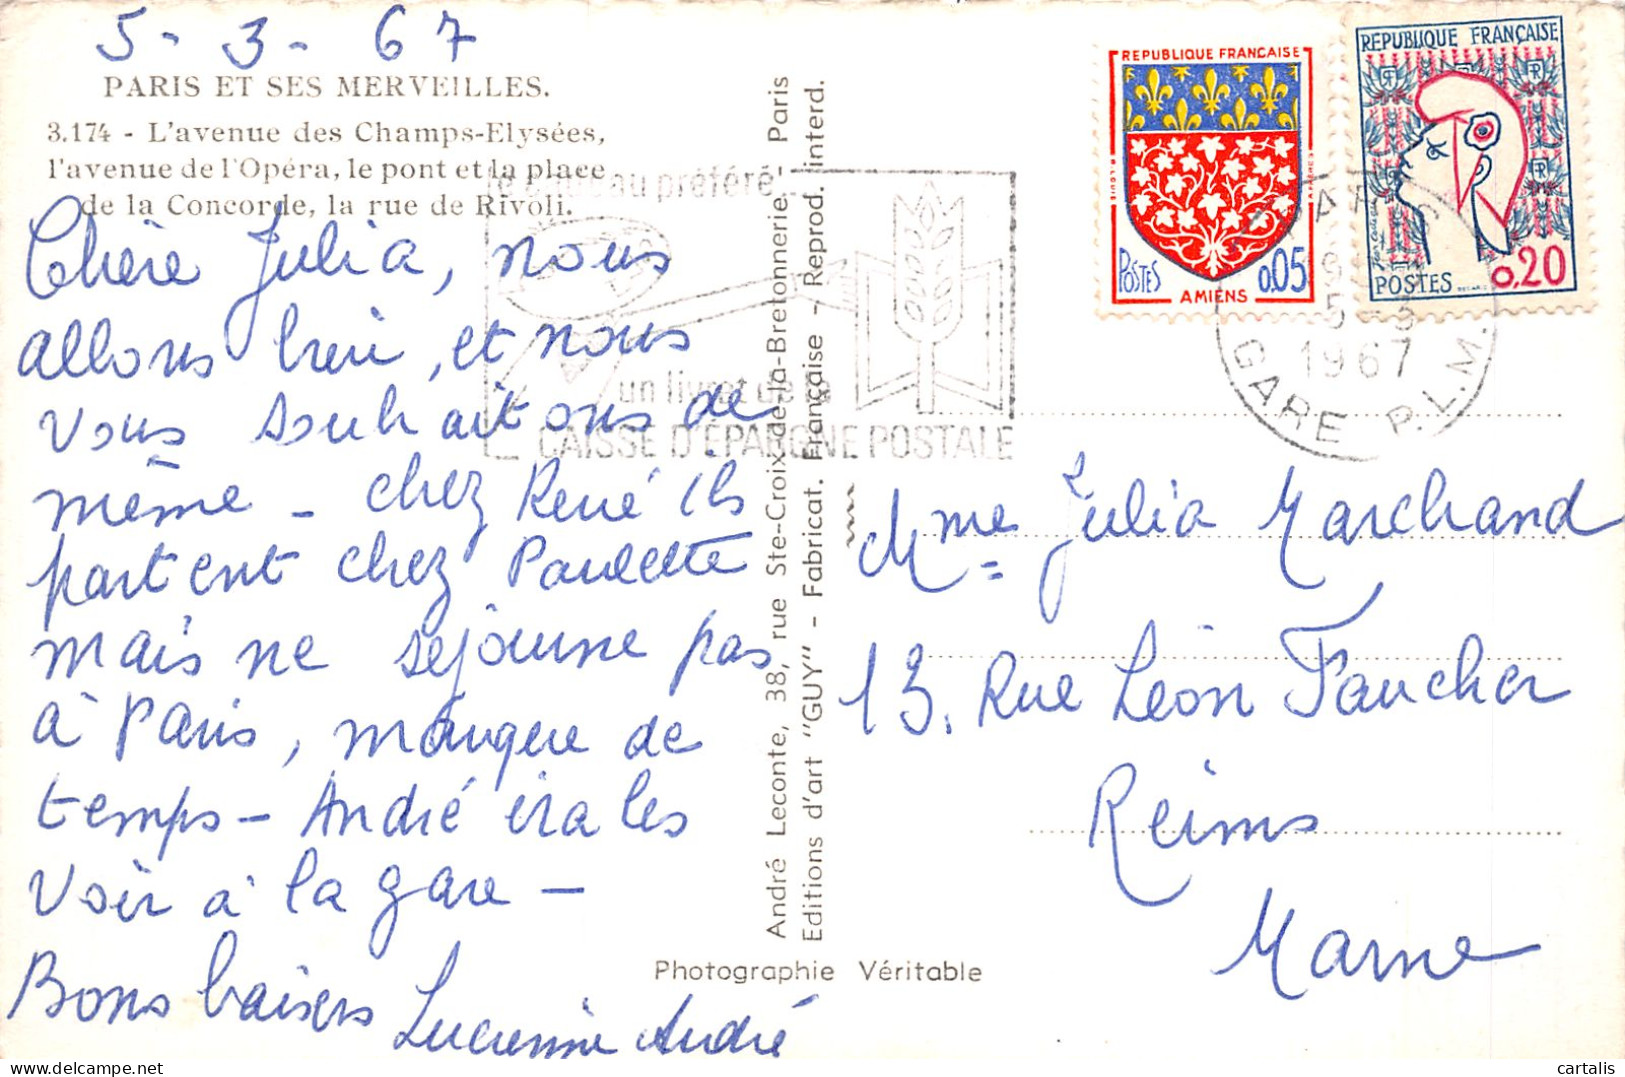 5-3-67
PARIS ET SES MERVEILLES.
3.174 - L'avenue des Champs-Elysées,
l'avenue de l'Opéra, le pont et la place
de la Concorde, la rue de Rivoli.
Chère Julia, nous
allons bien, et nous
vous souhaitons de
même - chez René ils
partent chez Paulette
mais ne séjourne pas
à Paris, manque de
temps - André ira les
voir à la gare -
Bons baisers Lucienne André
André Leconte, 38, rue Ste-Croix-de-la-Bretonnerie - Paris
Editions d'art "GUY" - Fabricat. Française - Reprod. interd.
Photographie Véritable
préféré
un livret de la
CAISSE D'EPARGNE POSTALE
REPUBLIQUE FRANÇAISE
POSTES
0,05
AMIENS
REPUBLIQUE FRANÇAISE
POSTES
0,20
5-3
1967
GARE P.L.M.
Mme Julia Marchand
13, Rue Léon Faucher
Reims
Marne
cartalis